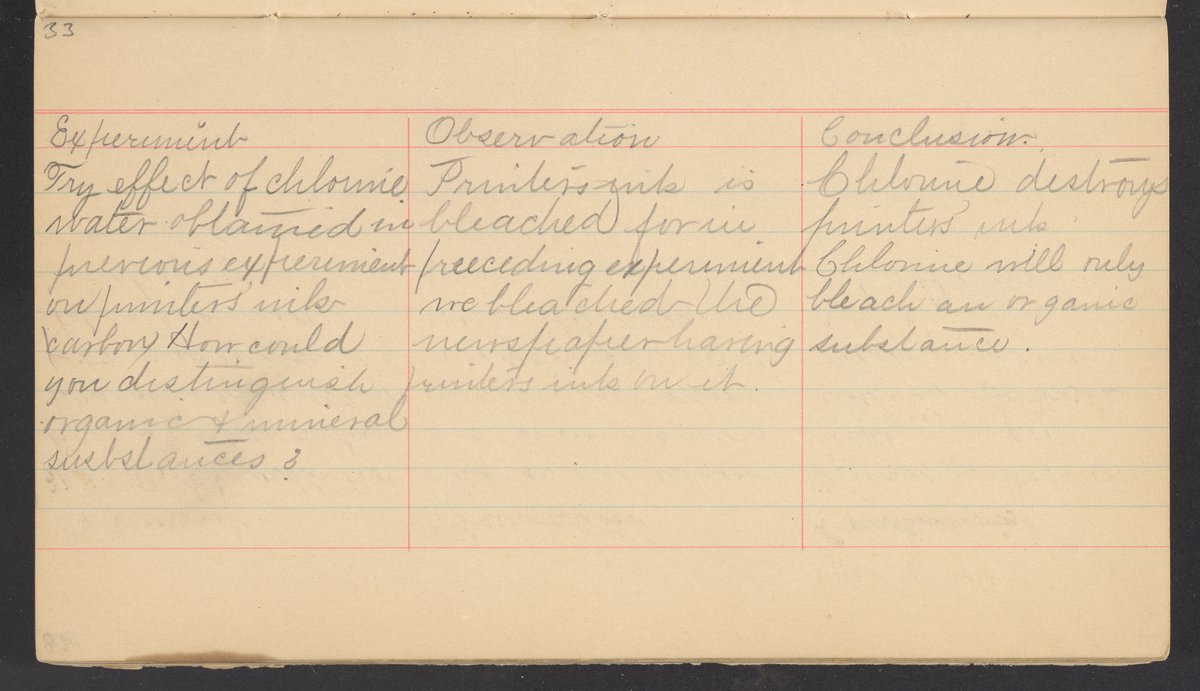 33
Experiment
Try effect of chlorine
water obtained in
previous experiment
on printers' ink
(carbon) How could
you distinguish
organic & mineral
susbstances?
Observation
Printers ink is
bleached for in
preceding experiment
we bleached the
newspaper having
printers ink on it.
Conclusion.
Chlorine destroys
printers' ink
Chlorine will only
bleach an organic
substance.